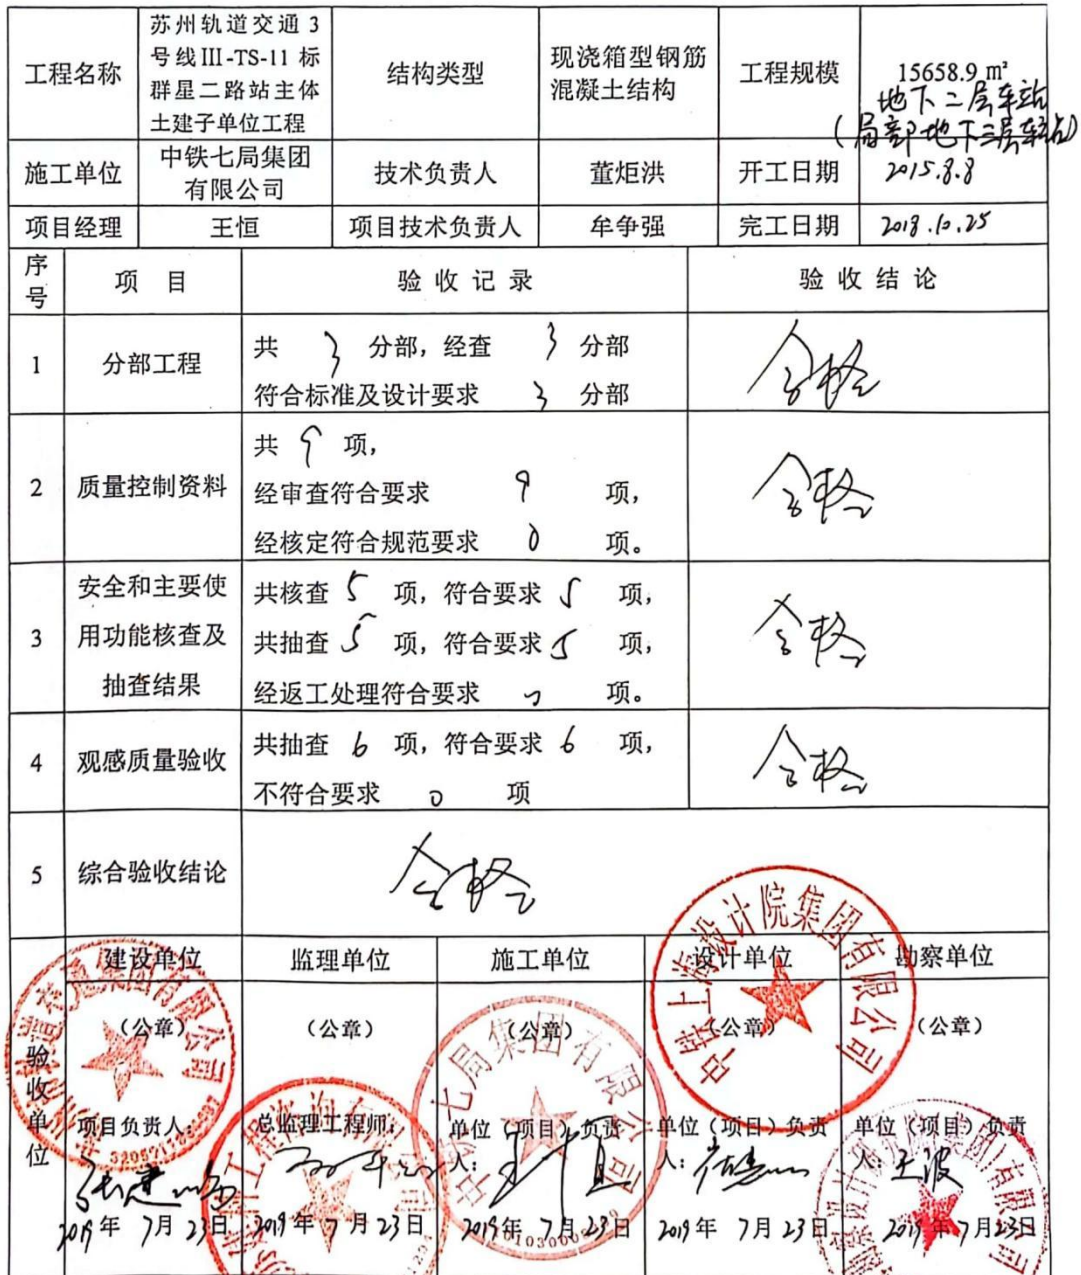 工程名称
苏州轨道交通3
号线III-TS-11标
群星二路站主体
土建子单位工程
结构类型
现浇箱型钢筋
混凝土结构
工程规模
15658.9㎡
地下二层车站
(局部地下三层车站)
施工单位
中铁七局集团
有限公司
技术负责人
董炬洪
开工日期
2015.8.8
项目经理
王恒
项目技术负责人
牟争强
完工日期
2018.10.25
序号
项 目
验 收 记 录
验 收 结 论
1
分部工程
共 3 分部，经查 3 分部
符合标准及设计要求 3 分部
合格
2
质量控制资料
共 9 项，
经审查符合要求 9 项，
经核定符合规范要求 0 项。
合格
3
安全和主要使
用功能核查及
抽查结果
共核查 5 项，符合要求 5 项，
共抽查 5 项，符合要求 5 项，
经返工处理符合要求 0 项。
合格
4
观感质量验收
共抽查 6 项，符合要求 6 项，
不符合要求 0 项
合格
5
综合验收结论
合格
验收单位
建设单位
监理单位
施工单位
设计单位
勘察单位
（公章）
（公章）
（公章）
（公章）
（公章）
项目负责人：
总监理工程师：
单位（项目）负责
人：王恒
单位（项目）负责
人：
单位（项目）负责
人：王波
2019年 7月23日
2019年 7月23日
2019年 7月23日
2019年 7月23日
2019年7月23日
轨道交通集团有限公司
工程咨询有限
中铁七局集团有限公司
中铁上海设计院集团有限公司
集团)有限公司